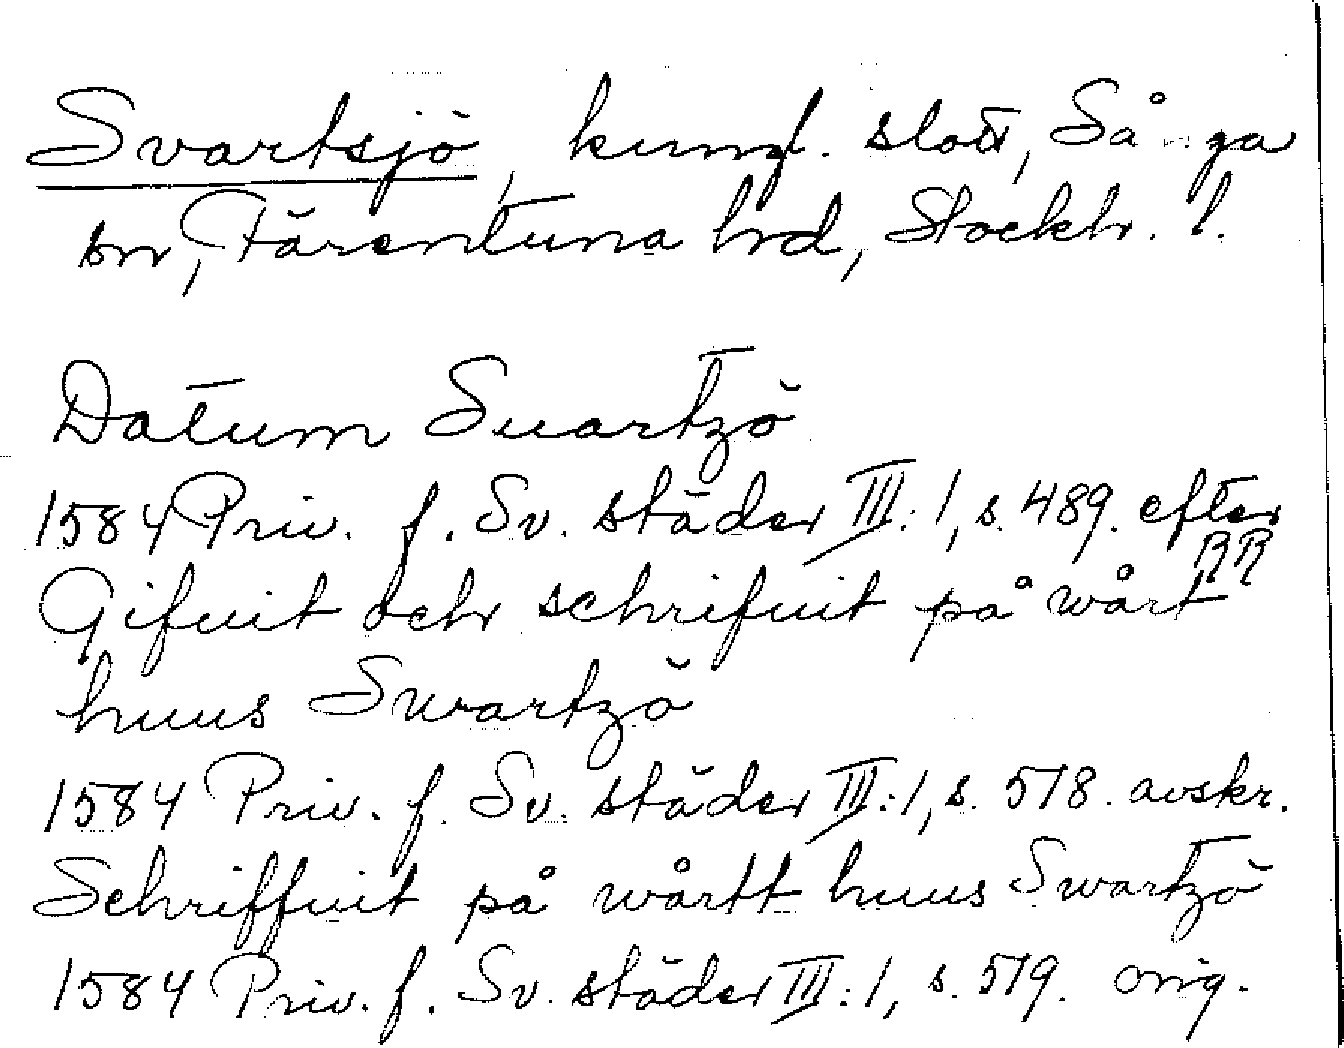 Svartsjö, kungl. slott, Sånga
sn, Färentuna hrd, Stockh. l.
Datum Suartzö
1584 Priv. f. Sv. städer III:1, s. 489. efter
RR
Gifuit och schrifuit på wårt
huus Swartzö
1584 Priv. f. Sv. städer III:1, s. 518. avskr.
Schriffuit på wårtt huus Swartzö
1584 Priv. f. Sv. städer III:1, s. 519. orig.